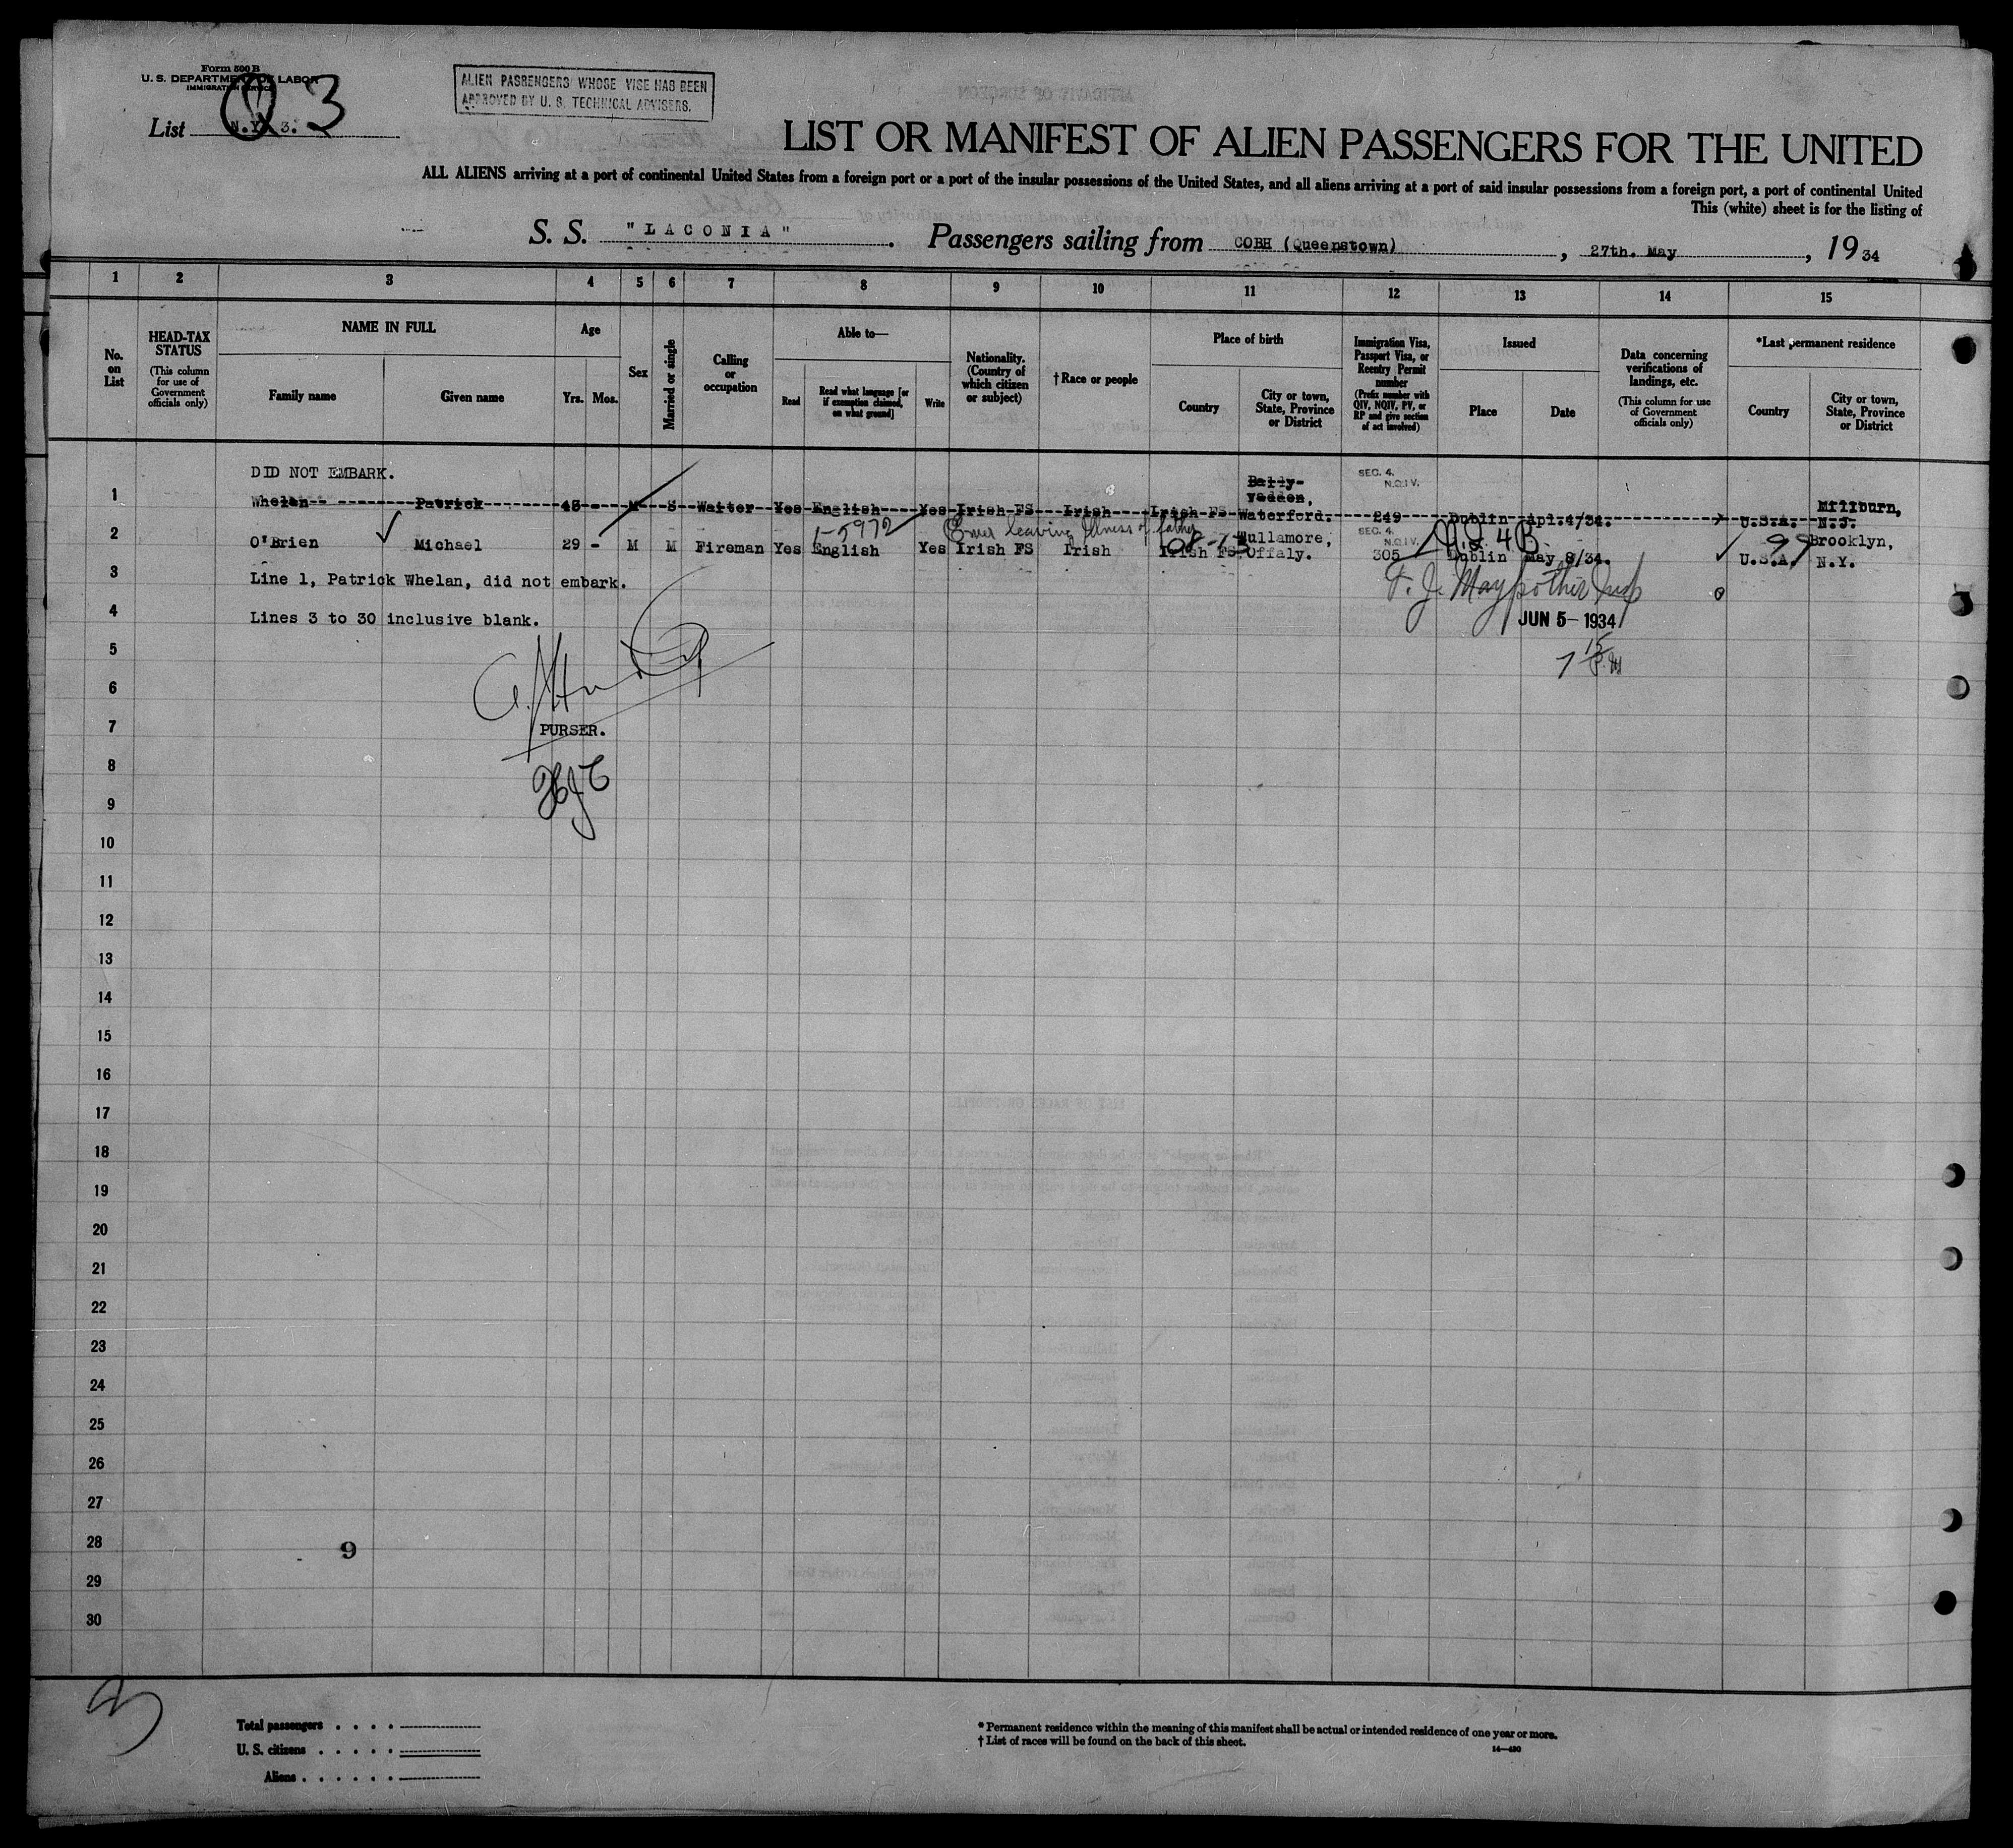 Form 500 B
U. S. DEPARTMENT OF LABOR
IMMIGRATION SERVICE
List N.Y. 3. 3
ALIEN PASSENGERS WHOSE VISE HAS BEEN
APPROVED BY U. S. TECHNICAL ADVISERS.
LIST OR MANIFEST OF ALIEN PASSENGERS FOR THE UNITED
ALL ALIENS arriving at a port of continental United States from a foreign port or a port of the insular possessions of the United States, and all aliens arriving at a port of said insular possessions from a foreign port, a port of continental United
This (white) sheet is for the listing of
S. S. "LACONIA". Passengers sailing from COBH (Queenstown), 27th. May, 1934
1 2 3 4 5 6 7 8 9 10 11 12 13 14 15
No. on List
HEAD-TAX STATUS (This column for use of Government officials only)
NAME IN FULL
Family name Given name
Age
Yrs. Mos.
Sex
Married or single
Calling or occupation
Able to—
Read Read what language [or if exemption claimed, on what ground] Write
Nationality. (Country of which citizen or subject)
†Race or people
Place of birth
Country City or town, State, Province or District
Immigration Visa, Passport Visa, or Reentry Permit number (Prefix number with QIV, NQIV, PV, or RP and give section of act involved)
Issued
Place Date
Data concerning verifications of landings, etc. (This column for use of Government officials only)
*Last permanent residence
Country City or town, State, Province or District
DID NOT EMBARK.
1 Whelan Patrick 43 - M S Waiter Yes English Yes Irish FS Irish Irish FS Bally-yadden, Waterford. SEC. 4. N.Q.I.V. 249 Dublin Apl.4/34. U.S.A. Millburn, N.J.
1-5972 Emer leaving Illness of father
2 O'Brien Michael 29 - M M Fireman Yes English Yes Irish FS Irish Irish FS Tullamore, Offaly. SEC. 4. N.Q.I.V. 305 Dublin May 8/34. U.S.A. 99 Brooklyn, N.Y.
4B
3 Line 1, Patrick Whelan, did not embark.
F. J. Maypother Insp
4 Lines 3 to 30 inclusive blank.
JUN 5- 1934
5
7 15 P.M
6
7 PURSER.
8
9
10
11
12
13
14
15
16
17
18
19
20
21
22
23
24
25
26
27
28 9
29
30
Total passengers . . . .
U. S. citizens . . . . .
Aliens . . . . . .
* Permanent residence within the meaning of this manifest shall be actual or intended residence of one year or more.
† List of races will be found on the back of this sheet.
14—430